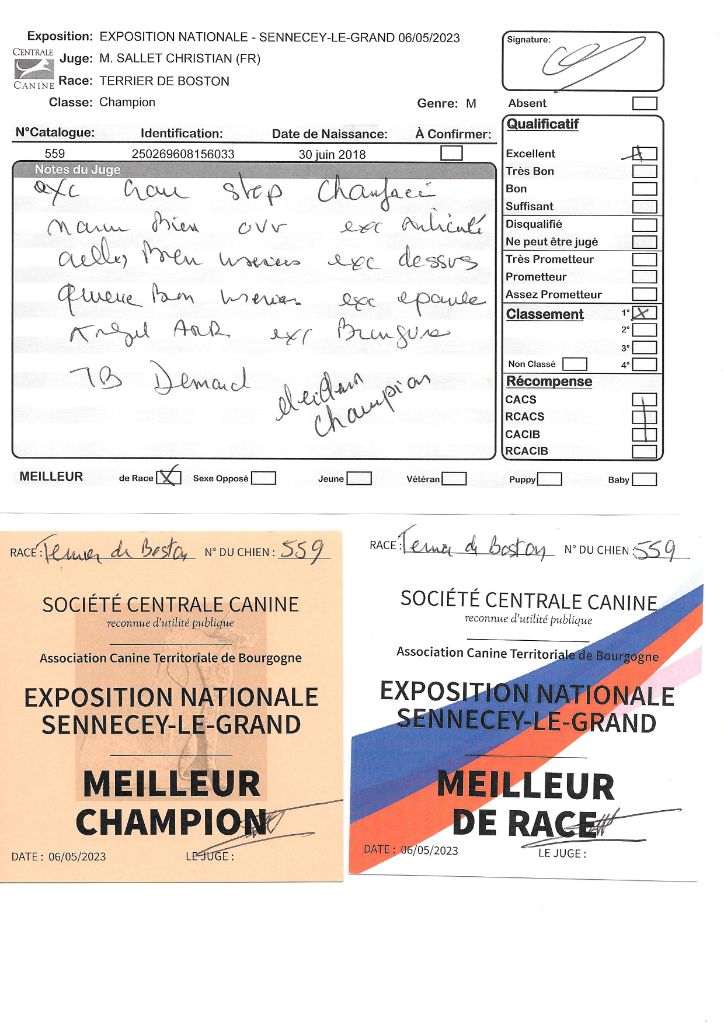 Exposition: EXPOSITION NATIONALE - SENNECEY-LE-GRAND 06/05/2023
CENTRALE
CANINE
Juge: M. SALLET CHRISTIAN (FR)
Race: TERRIER DE BOSTON
Classe: Champion
Genre: M
N°Catalogue: Identification: Date de Naissance: À Confirmer:
559 250269608156033 30 juin 2018
Notes du Juge
exc stop
Bien exc
Bien exc dessus
exc epaule
exc
TB
champion
Signature:
Absent
Qualificatif
Excellent
Très Bon
Bon
Suffisant
Disqualifié
Ne peut être jugé
Très Prometteur
Prometteur
Assez Prometteur
Classement 1°
2°
3°
Non Classé 4°
Récompense
CACS
RCACS
CACIB
RCACIB
MEILLEUR de Race Sexe Opposé Jeune Vétéran Puppy Baby
RACE: Terrier de Boston N° DU CHIEN: 559
SOCIÉTÉ CENTRALE CANINE
reconnue d'utilité publique
Association Canine Territoriale de Bourgogne
EXPOSITION NATIONALE
SENNECEY-LE-GRAND
MEILLEUR
CHAMPION
DATE : 06/05/2023 LE JUGE :
RACE: Terrier de Boston N° DU CHIEN: 559
SOCIÉTÉ CENTRALE CANINE
reconnue d'utilité publique
Association Canine Territoriale de Bourgogne
EXPOSITION NATIONALE
SENNECEY-LE-GRAND
MEILLEUR
DE RACE
DATE : 06/05/2023 LE JUGE :